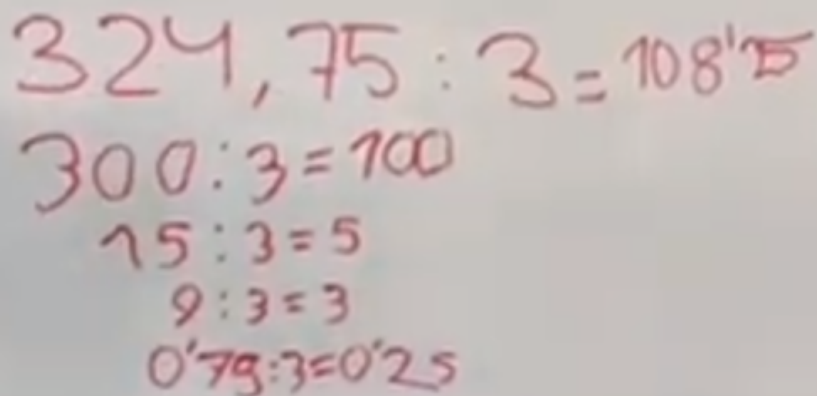 324,75 : 3 = 108'25
300 : 3 = 100
15 : 3 = 5
9 : 3 = 3
0'75 : 3 = 0'25